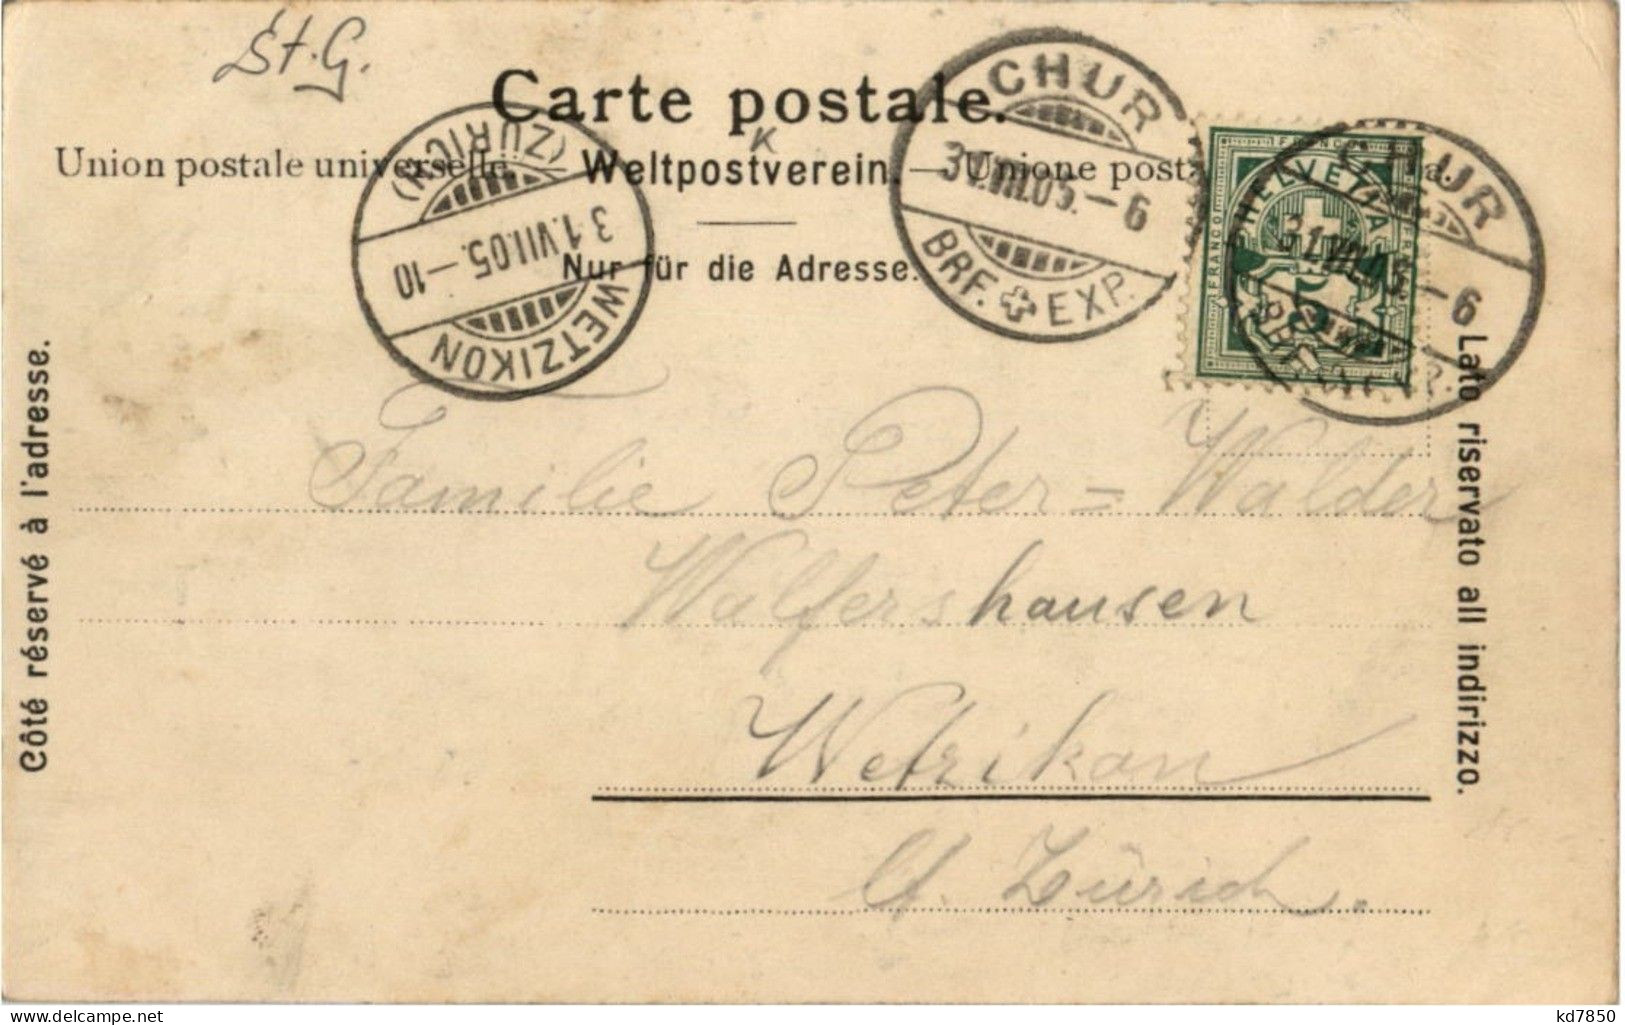 St. G.
Carte postale.
K
Union postale universelle. — Weltpostverein. — Unione post
Nur für die Adresse.
(ZÜRICH)
31.VII.05.–10
WETZIKON
CHUR
31.VII.05.–6
BRF. EXP.
FRANCO
HELVETIA
FRANCO
5
CHUR
31.VII.05.–6
BRF. EXP.
Côté réservé à l'adresse.
Lato riservato all indirizzo.
Familie Peter = Walder
Walfershausen
Wetzikon
Ct. Zürich.
kd7850